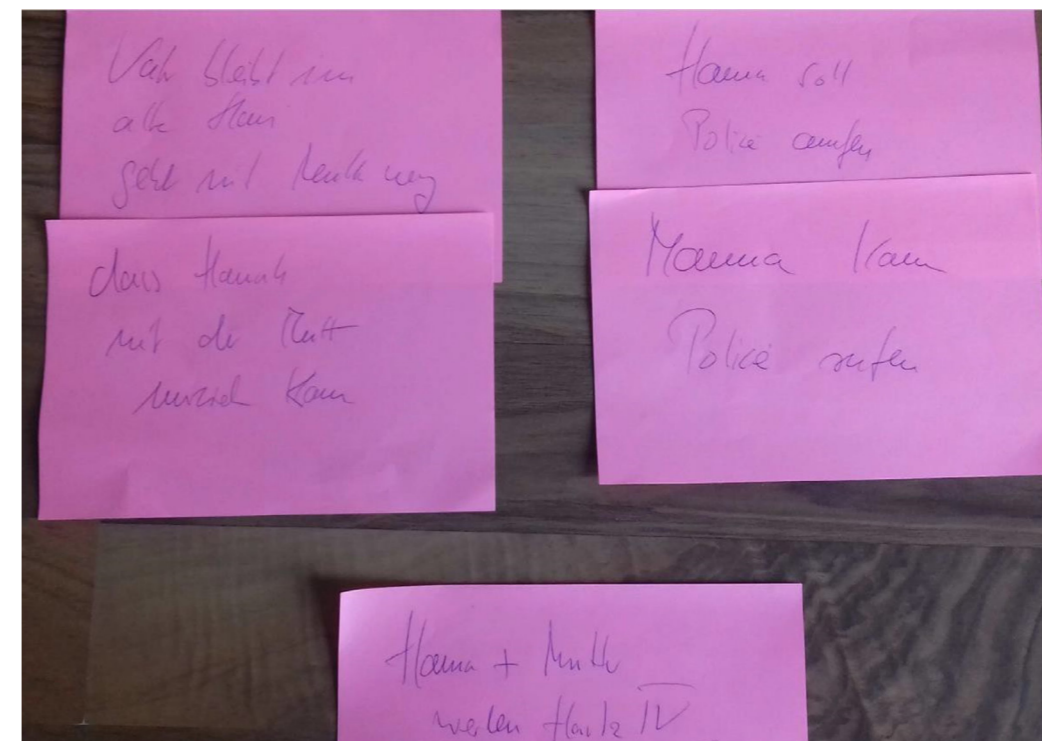 Vater bleibt im
alte Haus
geht mit Mutter weg
dass Hannah
mit der Mutt
umzieh kann
Hanna soll
Police anrufen
Mama kann
Police rufen
Hanna + Mutter
werden Hartz IV